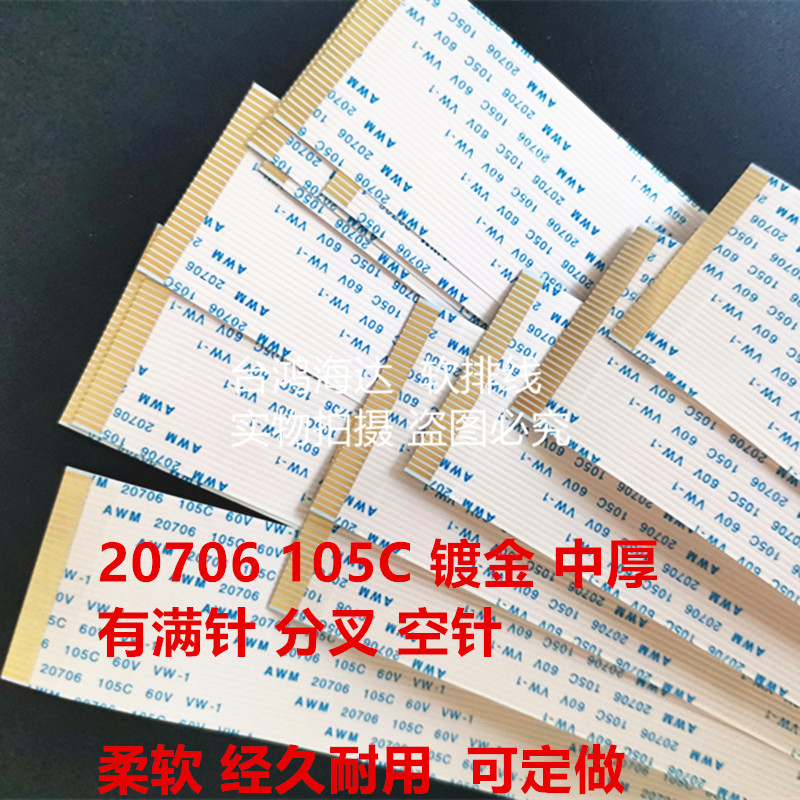 AWM 20706 105C 60V VW-1
台鸿海达 软排线
实物拍摄 盗图必究
20706 105C 镀金 中厚
有满针 分叉 空针
AWM 20706 105C 60V VW-1
柔软 经久耐用 可定做